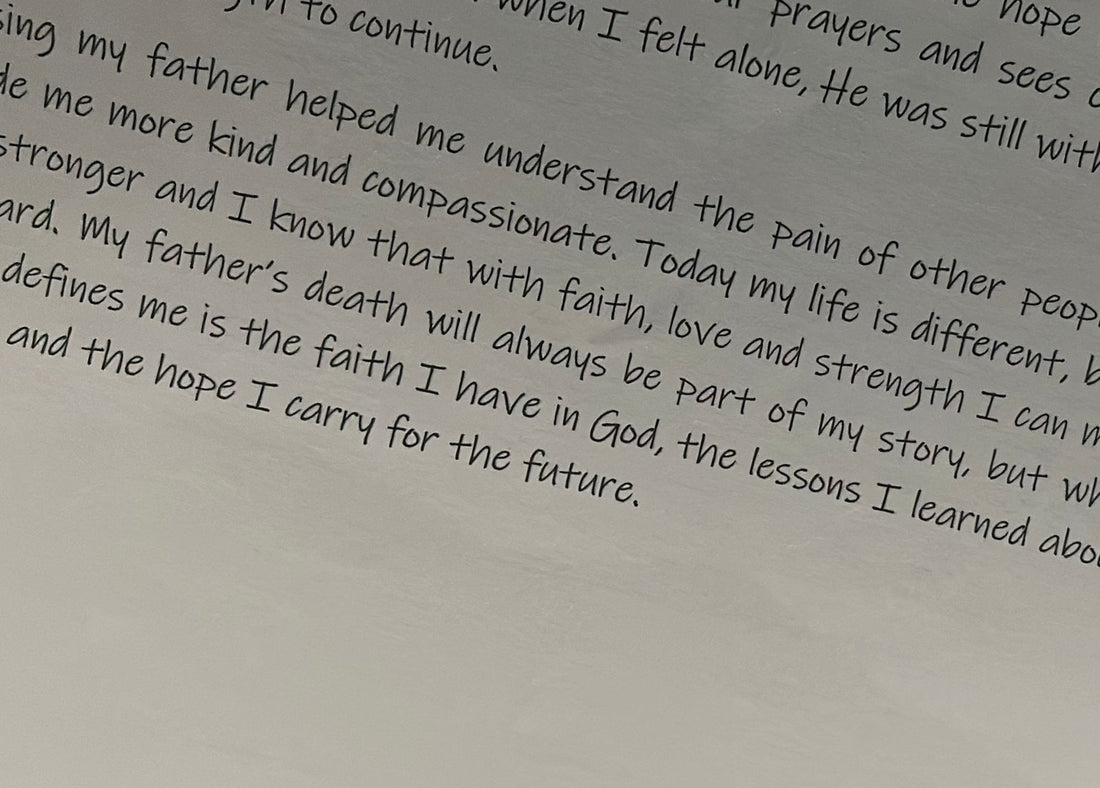 hope
prayers and sees
when I felt alone, He was still with
to continue.
my father helped me understand the pain of other
me more kind and compassionate. Today my life is different,
stronger and I know that with faith, love and strength I can
My father's death will always be part of my story, but
defines me is the faith I have in God, the lessons I learned
and the hope I carry for the future.